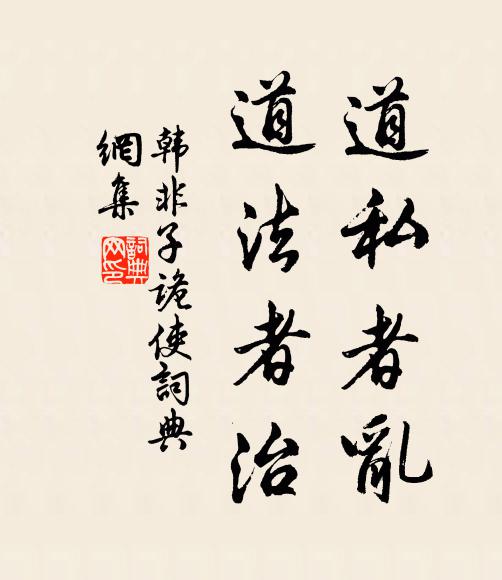 道私者亂
道法者治
韩非子詭使詞典
網集
詞典
网印